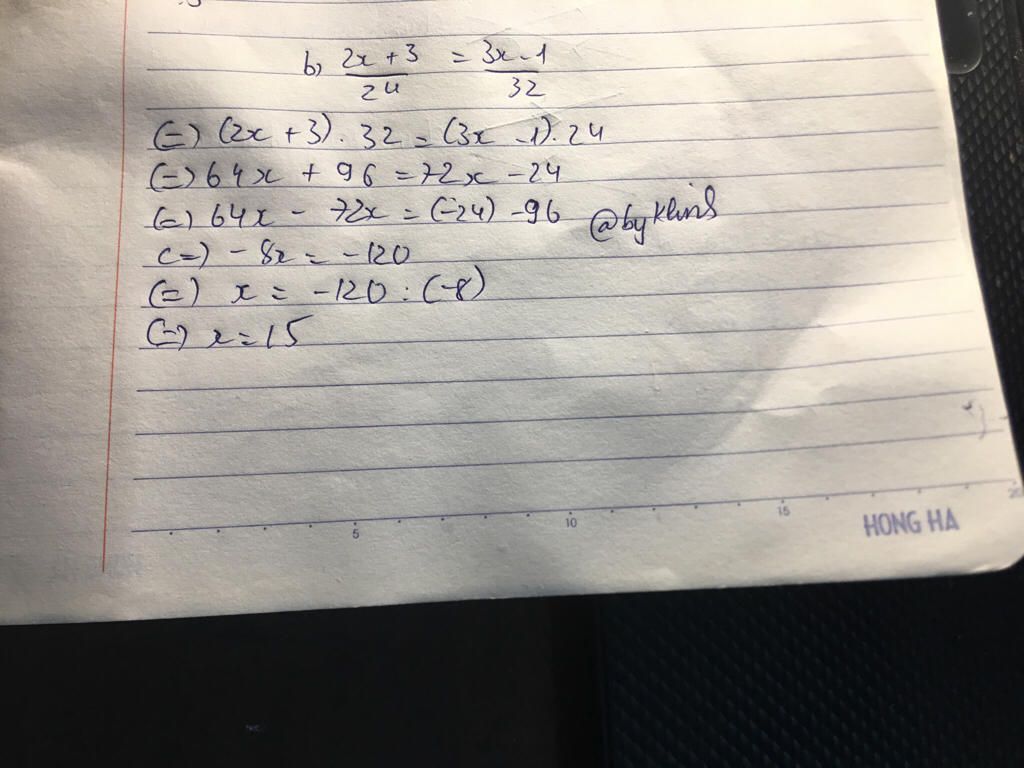 b, 2x + 3 = 3x - 1
24 32
(=) (2x + 3) . 32 = (3x - 1) . 24
(=) 64x + 96 = 72x - 24
(=) 64x - 72x = (-24) - 96 @by
(=) - 8x = -120
(=) x = -120 : (-8)
(=) x = 15
5 10 15 20
HONG HA